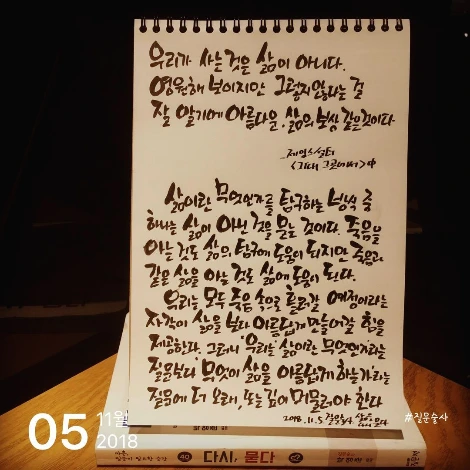 우리가 사는 것은 삶이 아니다.
영원해 보이지만 그렇지 않다는 걸
잘 알기에 아름다운, 삶의 보상 같은 것이다
_제임스 설터
<그때 그곳에서> 中
삶이란 무엇인가를 탐구하는 방식 중
하나는 삶이 아닌 것을 묻는 것이다. 죽음을
아는 것도 삶의 탐구에 도움이 되지만 죽음과
같은 삶을 아는 것도 삶에 도움이 된다.
우리는 모두 죽음 속으로 흘러갈 예정이라는
자각이 삶을 보다 아름답게 만들어갈 힘을
제공한다. 그러니 '우리는' 삶이란 무엇인가'라는
질문보다 '무엇이 삶을 아름답게 하는가'라는
질문에 더 오래, 또는 깊이 머물러야 한다
2018.11.5 질문술사
#질문술사
05 11월
2018
다시, 묻다